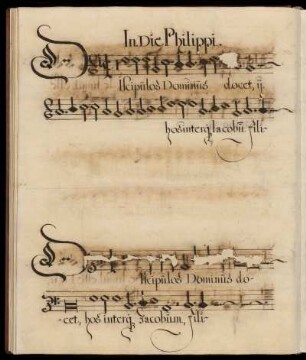 In Die Philippi.
Discipulos Dominus docet, ij.
hos interq; Iacobū fili-
Discipulos Dominus do-
cet, hos interq; Iacobum, fili-